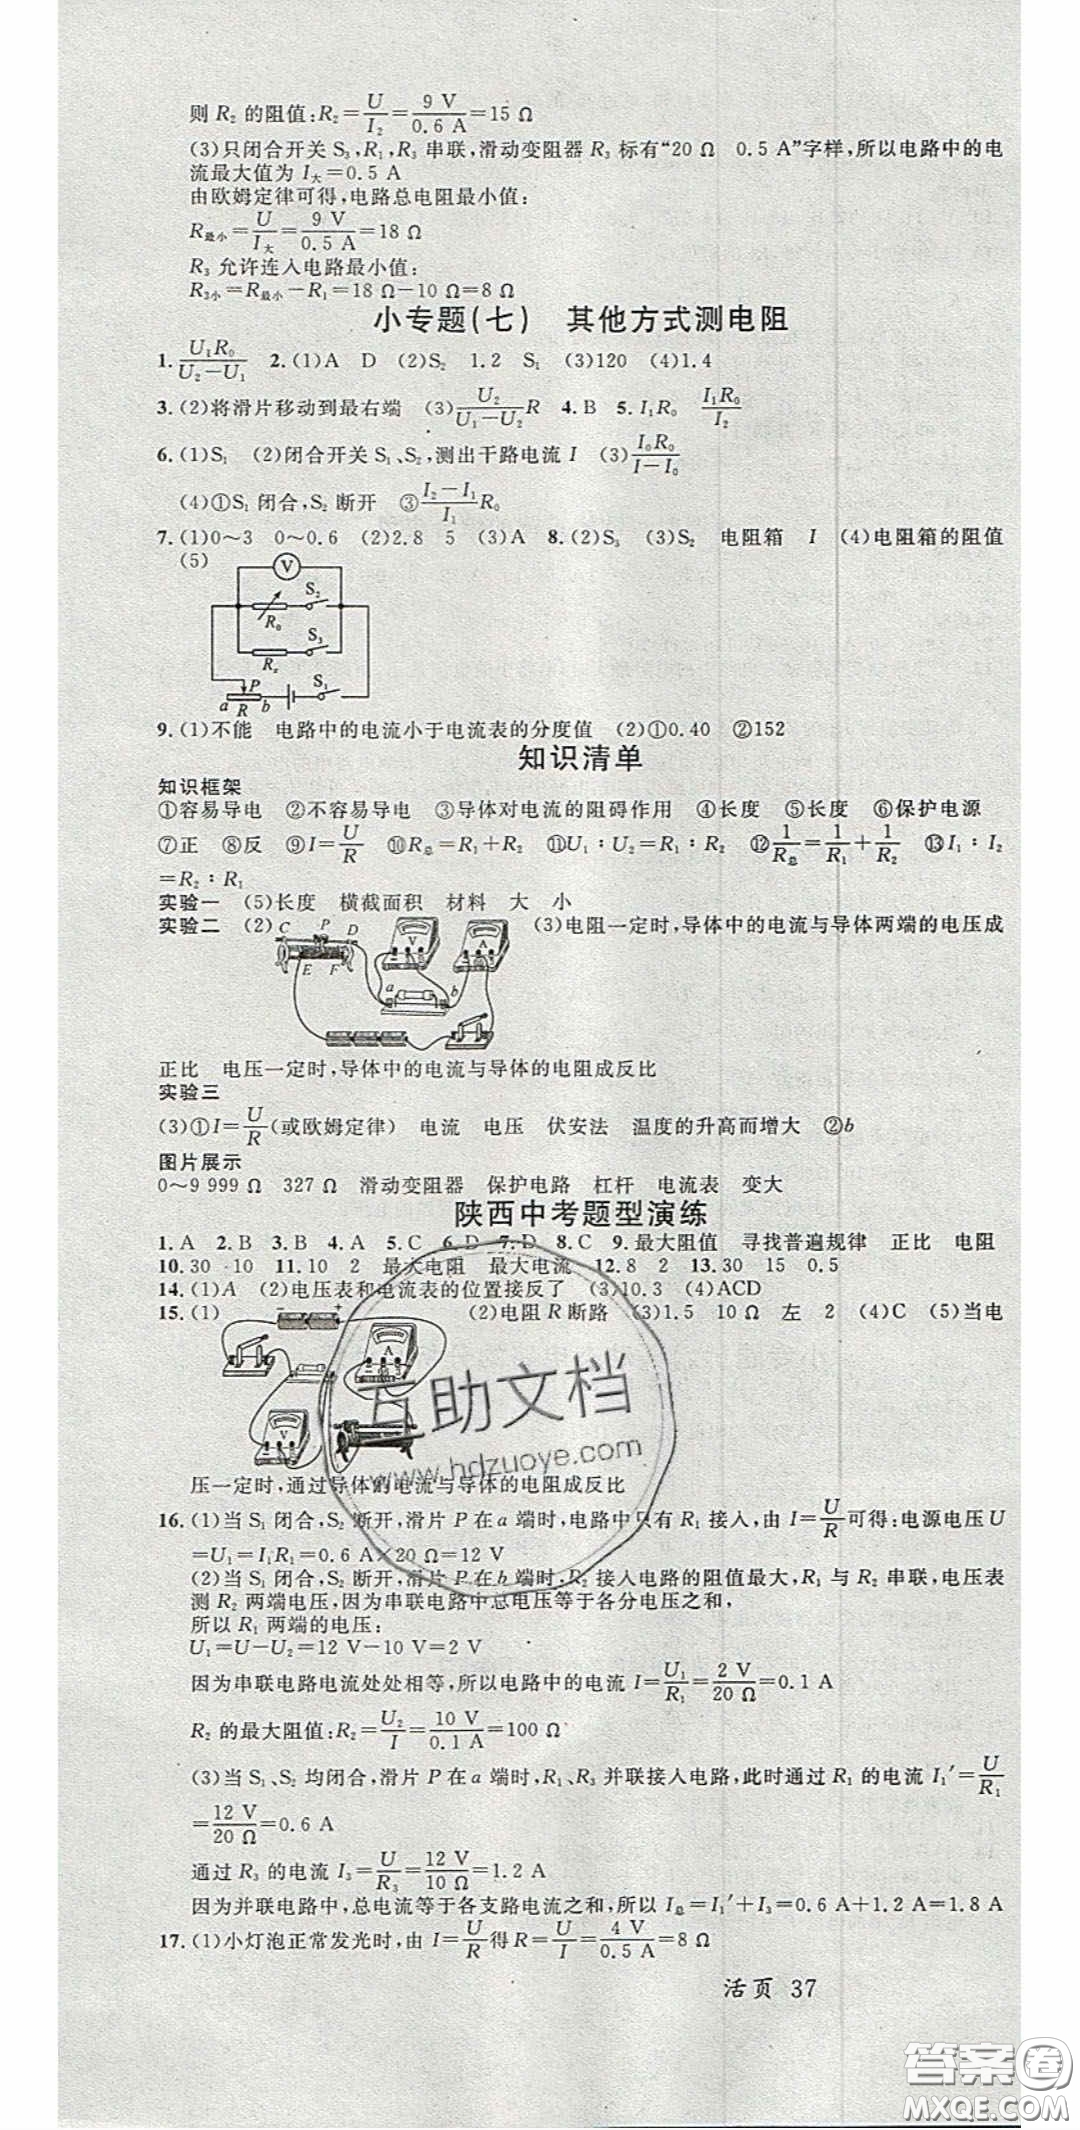 则 R₂ 的阻值:R₂=U/I₂=9 V/0.6 A=15 Ω
(3)只闭合开关 S₃,R₁,R₃ 串联,滑动变阻器 R₃ 标有“20 Ω 0.5 A”字样,所以电路中的电
流最大值为 I大=0.5 A
由欧姆定律可得,电路总电阻最小值:
R最小=U/I大=9 V/0.5 A=18 Ω
R₃ 允许连入电路最小值:
R₃小=R最小−R₁=18 Ω−10 Ω=8 Ω
小专题(七) 其他方式测电阻
1. U₁R₀/(U₂−U₁) 2. (1)A D (2)S₂ 1.2 S₁ (3)120 (4)1.4
3. (2)将滑片移动到最右端 (3)U₂/(U₁−U₂)R 4. B 5. I₁R₀ I₁R₀/I₂
6. (1)S₁ (2)闭合开关 S₁、S₂,测出干路电流 I (3)I₀R₀/(I−I₀)
(4)①S₁ 闭合,S₂ 断开 ③(I₂−I₁)/I₁ R₀
7. (1)0~3 0~0.6 (2)2.8 5 (3)A 8. (2)S₃ (3)S₂ 电阻箱 I (4)电阻箱的阻值
(5)
V
S₂
R₀
S₃
Rₓ
P S₁
a R b
9. (1)不能 电路中的电流小于电流表的分度值 (2)①0.40 ②152
知识清单
知识框架
①容易导电 ②不容易导电 ③导体对电流的阻碍作用 ④长度 ⑤长度 ⑥保护电源
⑦正 ⑧反 ⑨I=U/R ⑩R总=R₁+R₂ ⑪U₁∶U₂=R₁∶R₂ ⑫1/R总=1/R₁+1/R₂ ⑬I₁∶I₂
=R₂∶R₁
实验一 (5)长度 横截面积 材料 大 小
实验二 (2) (3)电阻一定时,导体中的电流与导体两端的电压成
C P D
E F
V A
a b
正比 电压一定时,导体中的电流与导体的电阻成反比
实验三
(3)①I=U/R(或欧姆定律) 电流 电压 伏安法 温度的升高而增大 ②b
图片展示
0~9 999 Ω 327 Ω 滑动变阻器 保护电路 杠杆 电流表 变大
陕西中考题型演练
1. A 2. B 3. B 4. A 5. C 6. D 7. D 8. C 9. 最大阻值 寻找普遍规律 正比 电阻
10. 30 10 11. 10 2 最大电阻 最大电流 12. 8 2 13. 30 15 0.5
14. (1)A (2)电压表和电流表的位置接反了 (3)10.3 (4)ACD
15. (1) (2)电阻 R 断路 (3)1.5 10 Ω 左 2 (4)C (5)当电
− +
A
V
压一定时,通过导体的电流与导体的电阻成反比
16. (1)当 S₁ 闭合,S₂ 断开,滑片 P 在 a 端时,电路中只有 R₁ 接入,由 I=U/R可得:电源电压 U
=U₁=I₁R₁=0.6 A×20 Ω=12 V
(2)当 S₁ 闭合,S₂ 断开,滑片 P 在 b 端时,R₂ 接入电路的阻值最大,R₁ 与 R₂ 串联,电压表
测 R₂ 两端电压,因为串联电路中总电压等于各分电压之和,
所以 R₁ 两端的电压:
U₁=U−U₂=12 V−10 V=2 V
因为串联电路电流处处相等,所以电路中的电流 I=U₁/R₁=2 V/20 Ω=0.1 A
R₂ 的最大阻值:R₂=U₂/I=10 V/0.1 A=100 Ω
(3)当 S₁、S₂ 均闭合,滑片 P 在 a 端时,R₁、R₃ 并联接入电路,此时通过 R₁ 的电流 I₁′=U/R₁
=12 V/20 Ω=0.6 A
通过 R₃ 的电流 I₃=U/R₃=12 V/10 Ω=1.2 A
因为并联电路中,总电流等于各支路电流之和,所以 I总=I₁′+I₃=0.6 A+1.2 A=1.8 A
17. (1)小灯泡正常发光时,由 I=U/R得 R=U/I=4 V/0.5 A=8 Ω
活页 37
互助文档
www.hdzuoye.com
答案圈
MXQE.COM